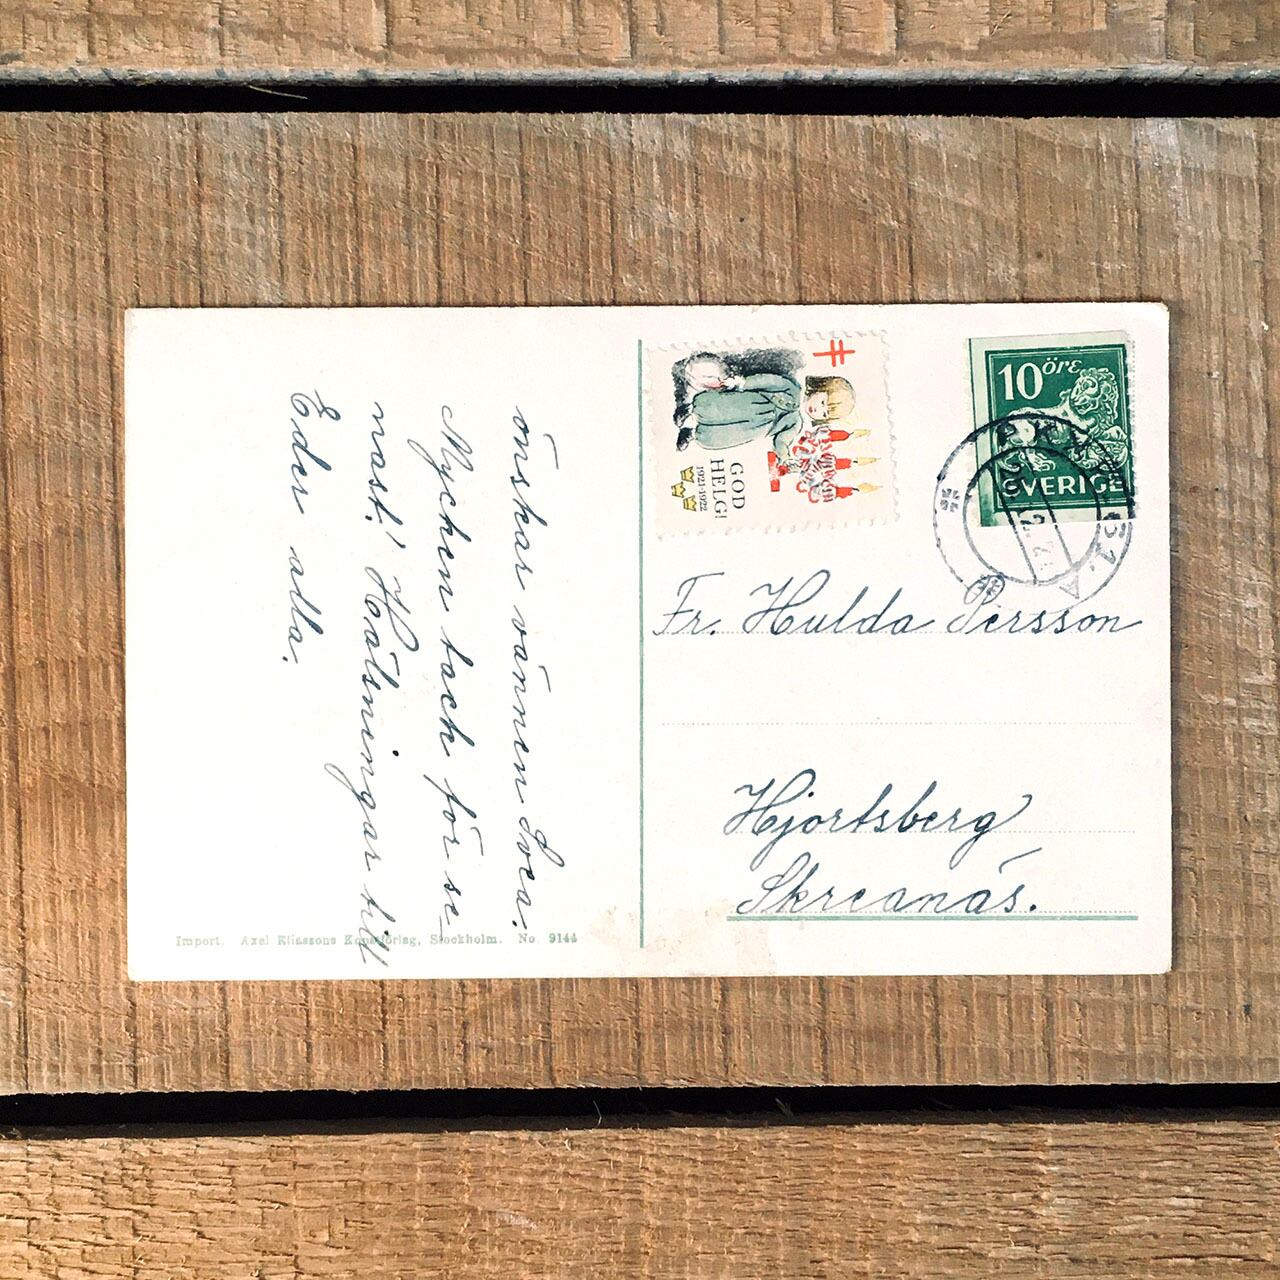 önskar vännen Svea.
Mycken tack för se-
nast! Hälsningar till
Eder alla.
Import. Axel Eliassons Konstförlag, Stockholm. No 9144
GOD
HELG!
1921-1922
10 öre
SVERIGE
PKXP
61. A
Fr. Hulda Persson
Hjortsberg
Skreanäs.